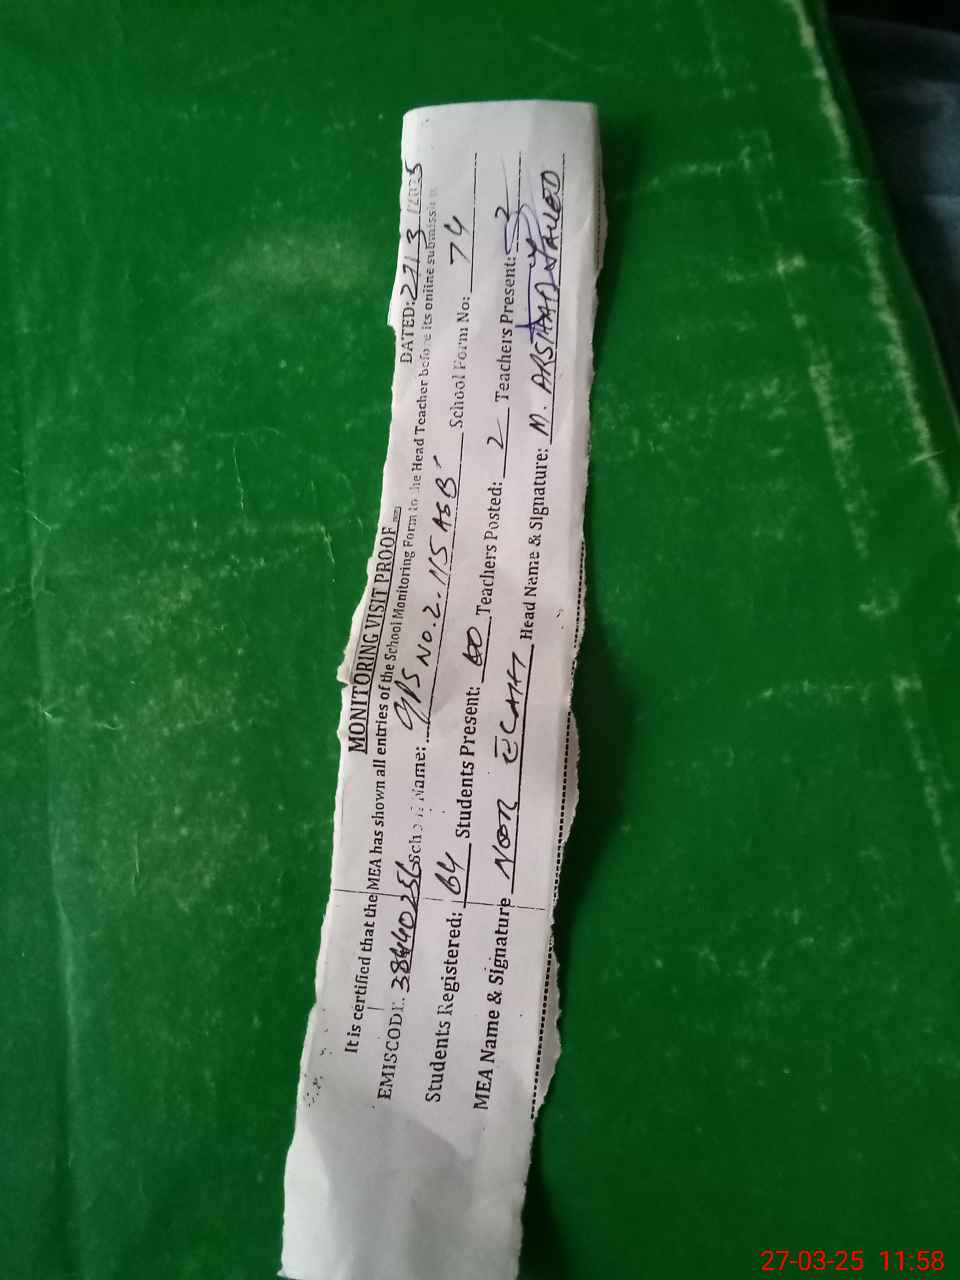 MONITORING VISIT PROOF DATED: 27/3/2025
It is certified that the MEA has shown all entries of the School Monitoring Form to the Head Teacher before its online submission
EMISCODE. 38440256 School Name: GPS NO.2.115 ASB School Form No: 74
Students Registered: 64 Students Present: Teachers Posted: 2 Teachers Present: 2
MEA Name & Signature NOOR ELAHI Head Name & Signature: M. ARSHAD JAVED
27-03-25 11:58